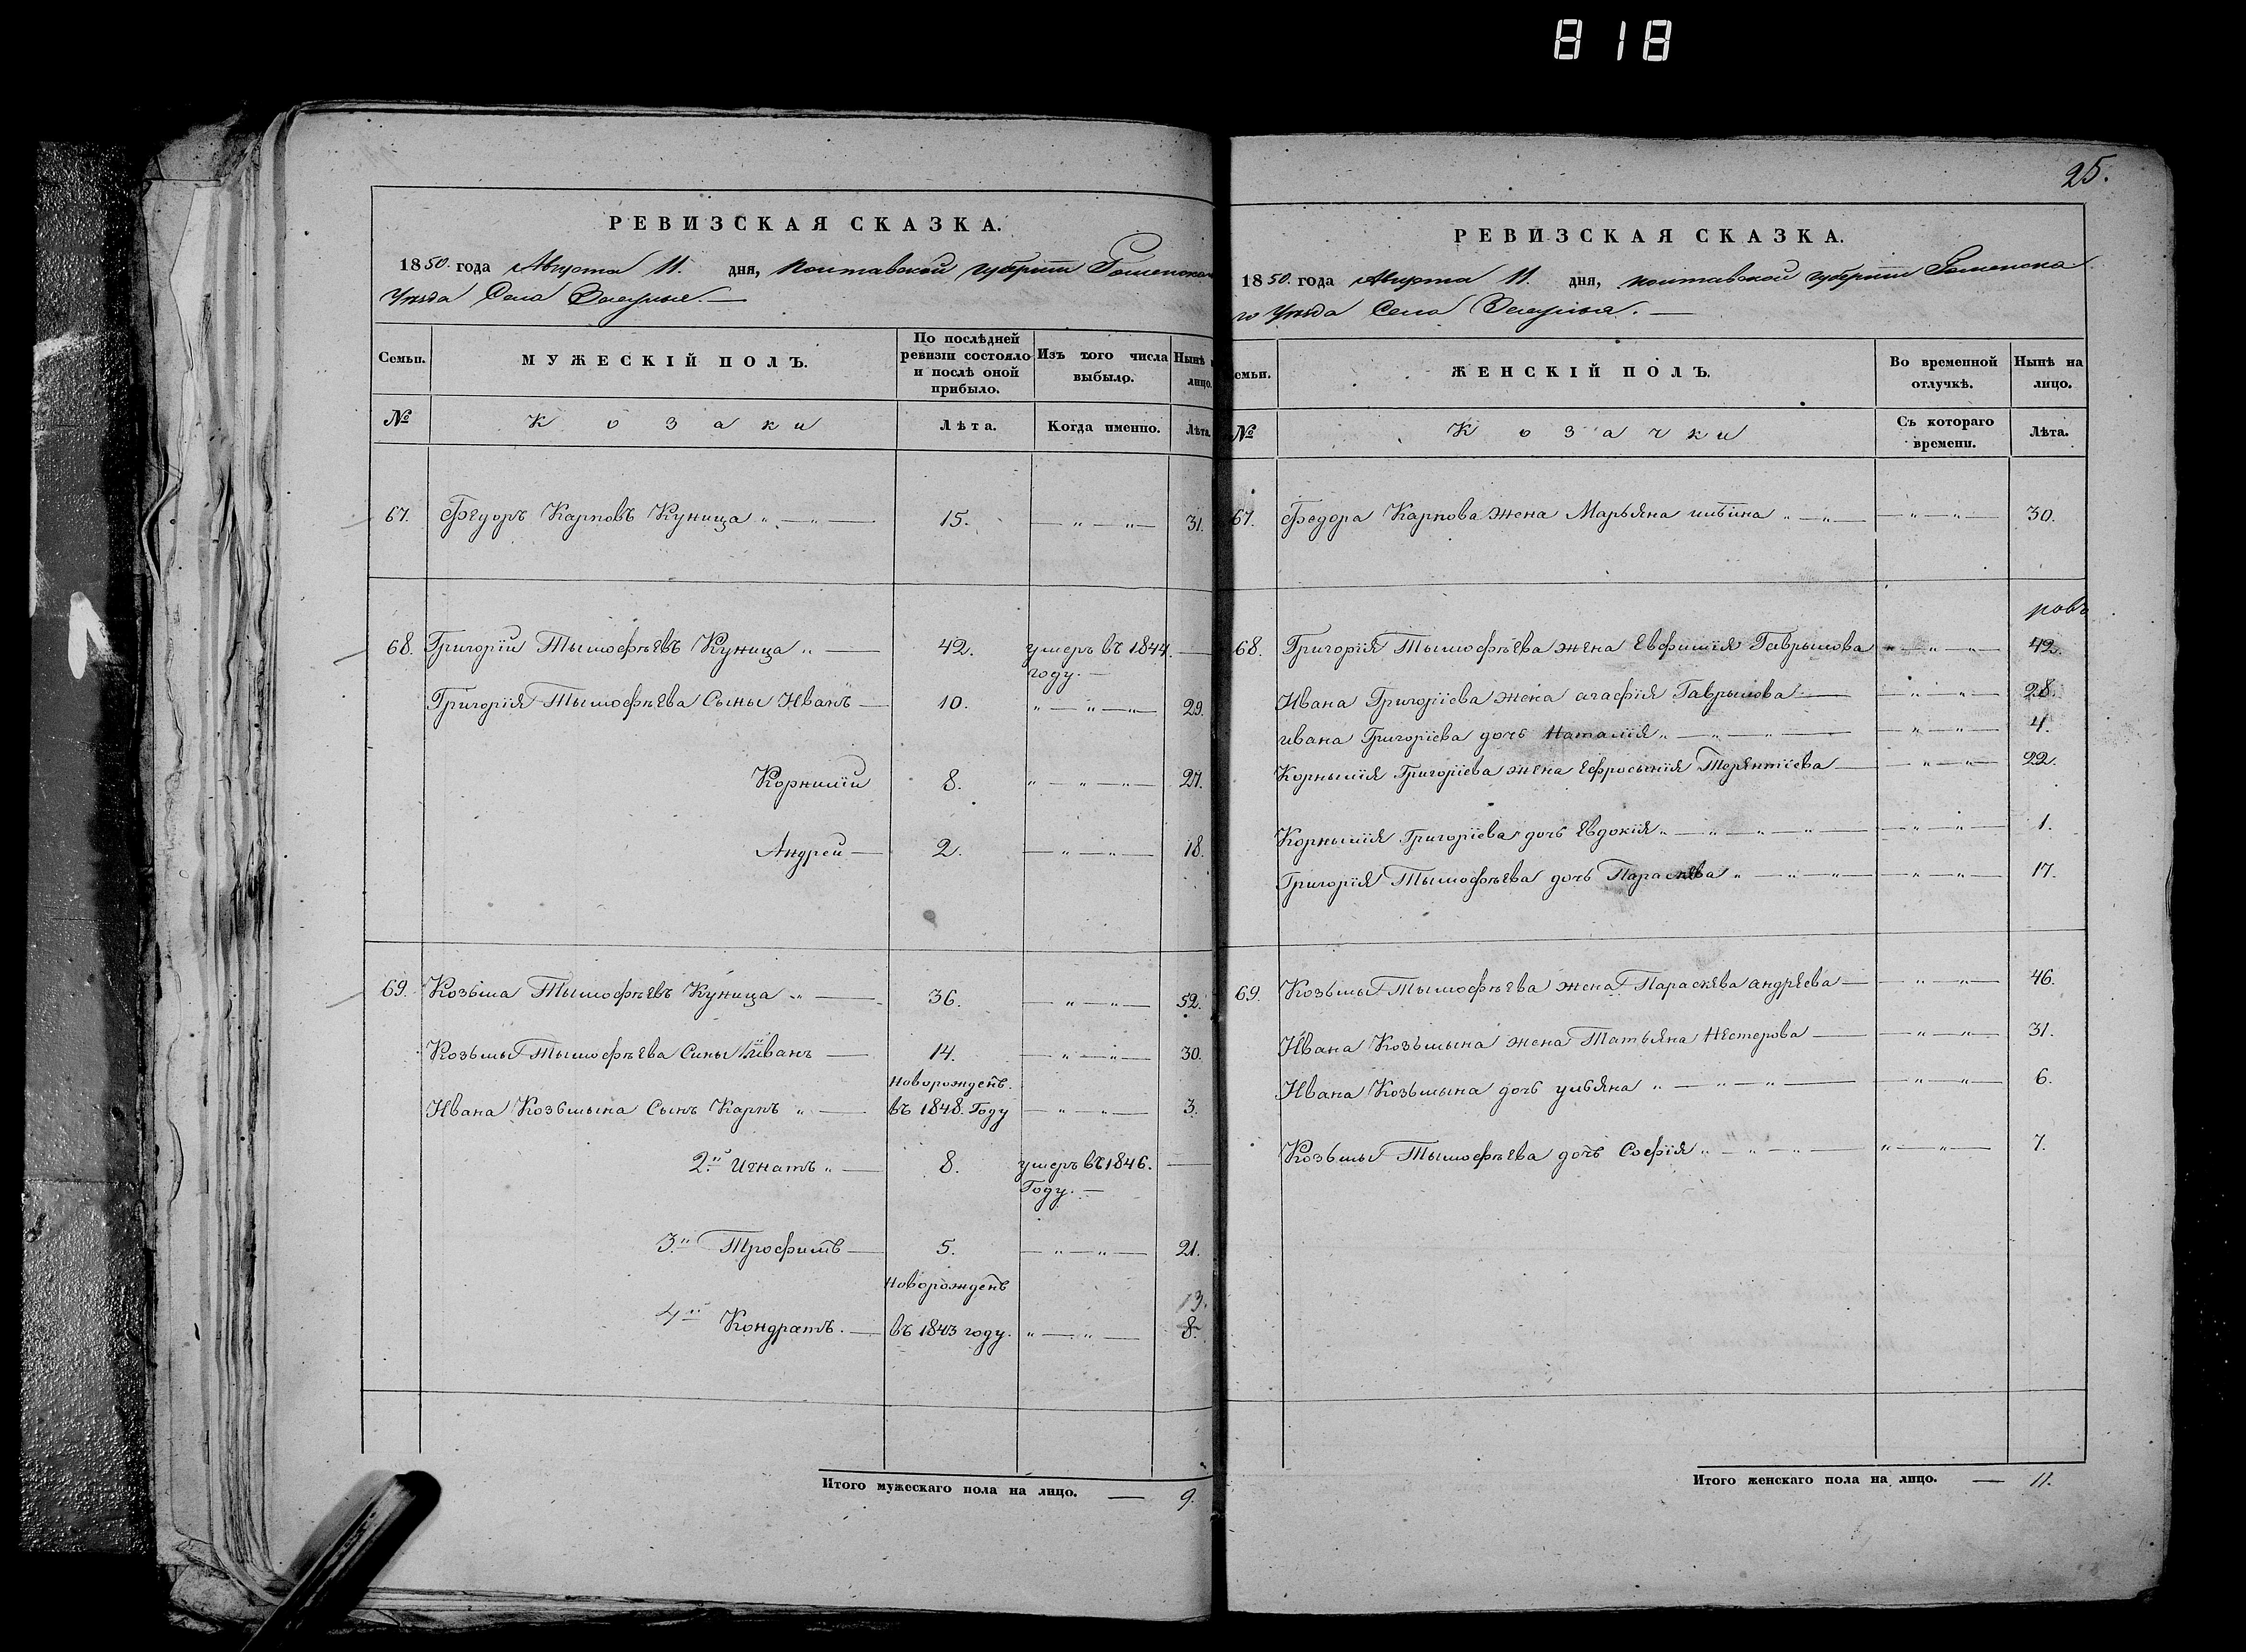 818
РЕВИЗСКАЯ СКАЗКА.
1850. года Августа 11. дня, Полтавской губернии Роменска
Уезда Села
Семьи. МУЖЕСКІЙ ПОЛЪ. По послѣдней ревизіи состояло и послѣ оной прибыло. Изъ того числа выбыло. Нынѣ лицо.
№ Козаки Лѣта. Когда именно. Лѣта.
67. Федоръ Карповъ Куница 15. 31.
68. Григорій Тымофѣевъ Куница 42. умеръ въ 1844.
году.
Григорія Тымофѣева Сыны Иванъ 10. 29.
Корнилій 8. 27.
Андрей 2. 18.
69. Козьма Тымофѣевъ Куница 36. 52.
Козьмы Тымофѣева Сины 1й иванъ 14. 30.
Новорожденъ.
Ивана Козьмына Сынъ Карпъ въ 1848. Году 3.
2й Игнатъ 8. умеръ въ 1846.
Году.
3й Трофимъ 5. 21.
Новорожденъ 13.
4й Кондратъ. въ 1843 году. 8.
Итого мужескаго пола на лицо. 9.
25.
РЕВИЗСКАЯ СКАЗКА.
1850. года Августа 11. дня, полтавской губернии Роменска
го Уезда Села
емьи. ЖЕНСКІЙ ПОЛЪ. Во временной отлучкѣ. Нынѣ на лицо.
№ Козачки Съ котораго времени. Лѣта.
67. Федора Карпова жена Марьяна ильина 30.
68. Григорія Тымофѣева жена Евфимія Гаврылова 42.
Ивана Григоріева жена агафія Гаврылова 28.
ивана Григоріева дочь Наталія 4.
Корнылія Григоріева жена Ефросынія Терентіева 22.
Корнылія Григоріева дочь Евдокія 1.
Григорія Тымофѣева дочь Параскева 17.
69. Козьмы Тымофѣева жена Параскева андрѣева 46.
Ивана Козьмына жена Татьяна Нестерова 31.
Ивана Козьмына дочь ульяна 6.
Козьмы Тымофѣева дочь Софія 7.
Итого женскаго пола на лицо. 11.